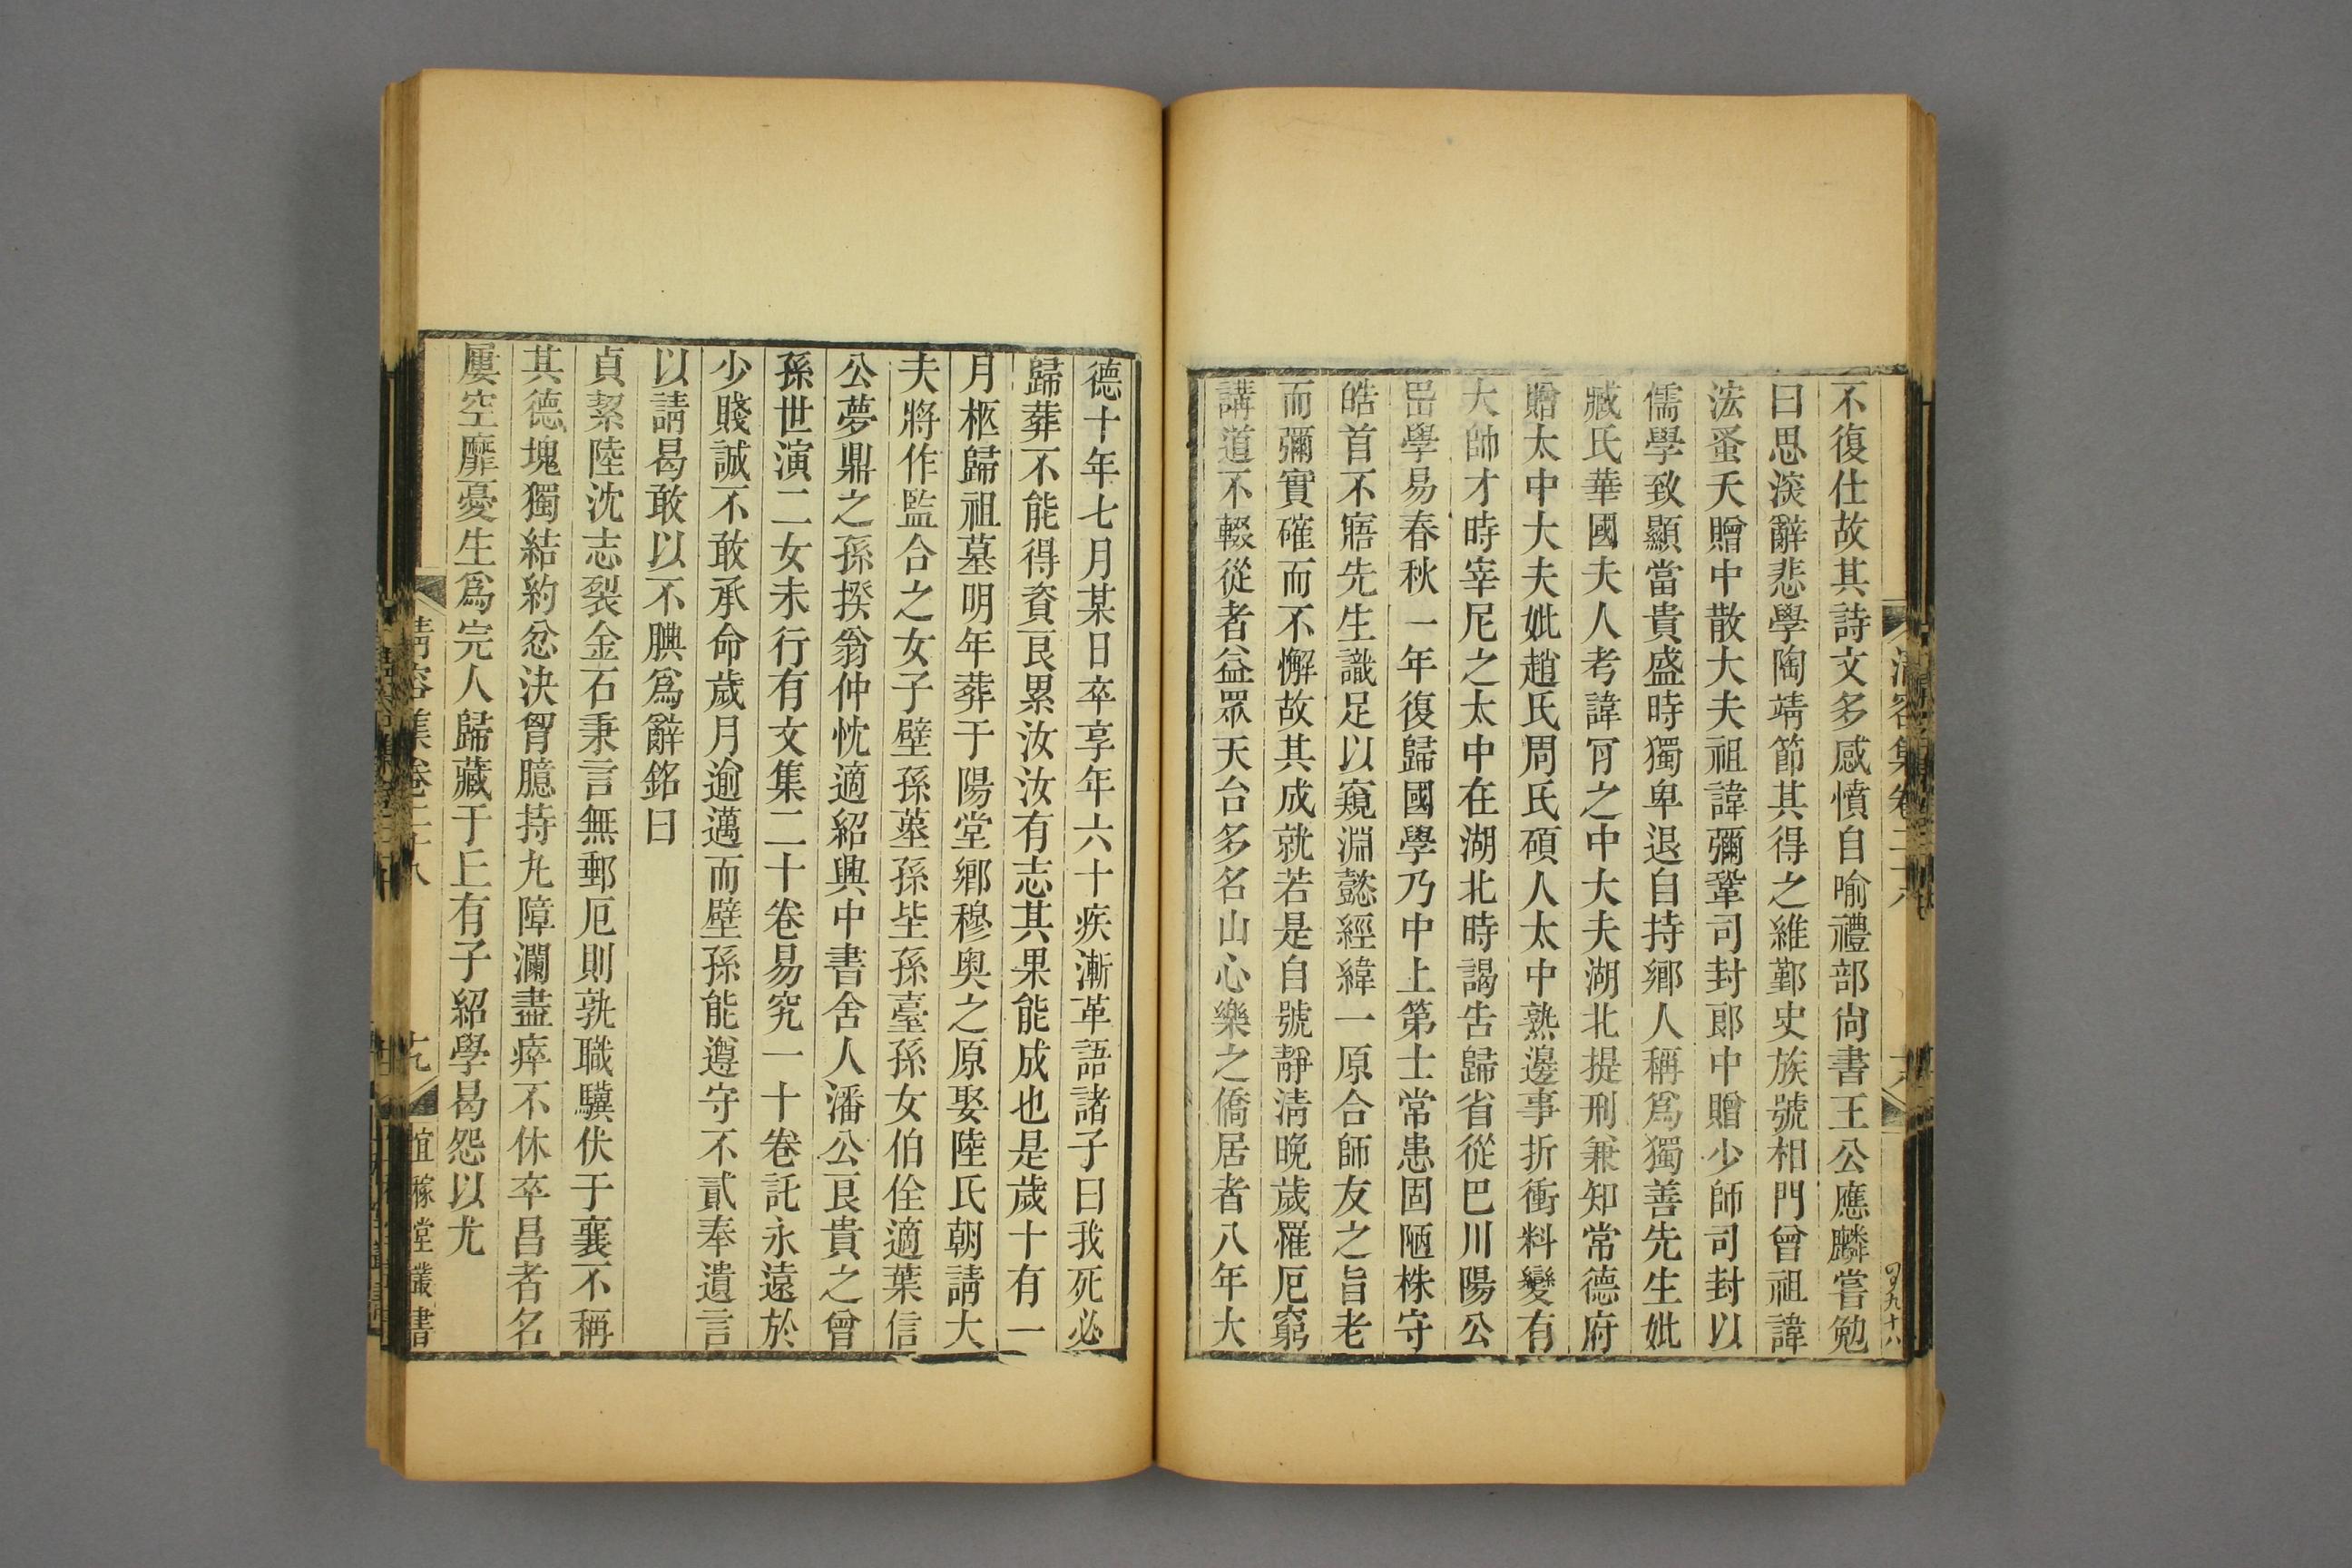 不復仕故其詩文多感憤自喻禮部尚書王公應麟嘗勉
曰思深辭悲學陶靖節其得之維鄞史族號相門曾祖諱
浤蚤夭贈中散大夫祖諱彌鞏司封郎中贈少師司封以
儒學致顯當貴盛時獨卑退自持鄉人稱爲獨善先生妣
臧氏華國夫人考諱肯之中大夫湖北提刑兼知常德府
贈太中大夫妣趙氏周氏碩人太中熟邊事折衝料變有
大帥才時宰尼之太中在湖北時謁告歸省從巴川陽公
嵒學易春秋一年復歸國學乃中上第士常患固陋株守
皓首不寤先生識足以窺淵懿經緯一原合師友之旨老
而彌實確而不懈故其成就若是自號靜淸晚歲罹厄窮
講道不輟從者益眾天台多名山心樂之僑居者八年大
清容集卷二十八
德十年七月某日卒享年六十疾漸革語諸子曰我死必
歸葬不能得資艮累汝汝有志其果能成也是歲十有一
月柩歸祖墓明年葬于陽堂鄉穆奥之原娶陸氏朝請大
夫將作監合之女子壁孫塟孫坒孫臺孫女伯佺適葉信
公夢鼎之孫揆翁仲忱適紹興中書舍人潘公艮貴之曾
孫世演二女未行有文集二十卷易究一十卷託永遠於
少賤誠不敢承命歲月逾邁而壁孫能遵守不貳奉遺言
以請曷敢以不腆爲辭銘曰
貞絜陸沈志裂金石秉言無郵厄則孰職驥伏于襄不稱
其德塊獨結約忿決胷臆持凢障瀾盡瘁不休卒昌者名
屢空靡憂生爲完人歸藏于丄有子紹學曷怨以尤
清容集卷二十八
十九
宜稼堂叢書